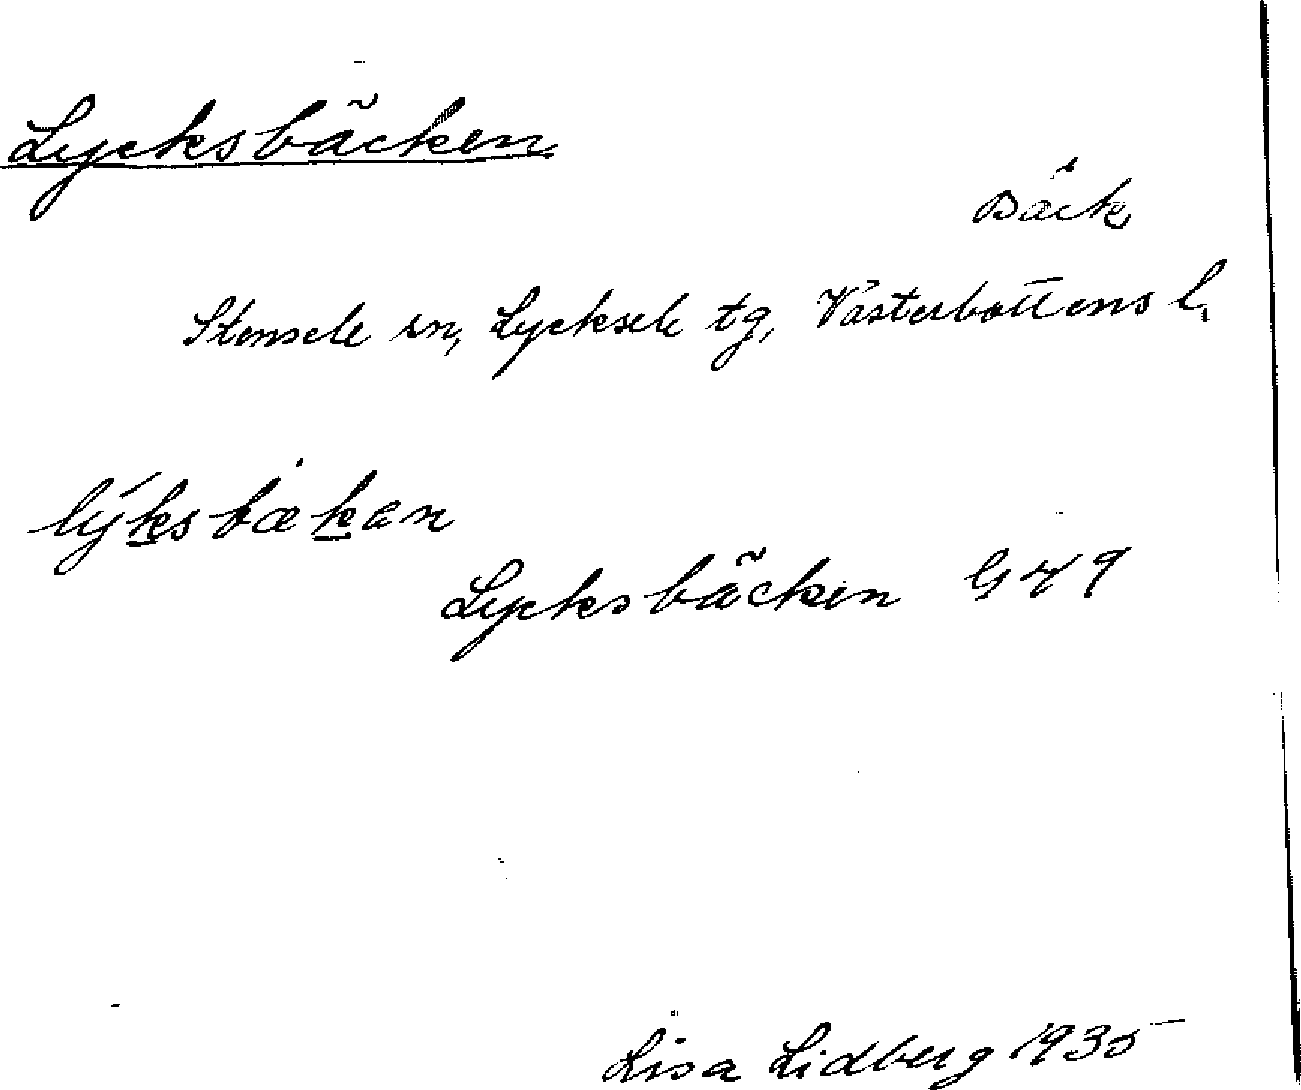 Lycksbäcken
Bäck
Stensele sn, Lycksele tg, Västerbottens l.
lýksbækan
Lycksbäcken G 49
Lisa Lidberg 1935